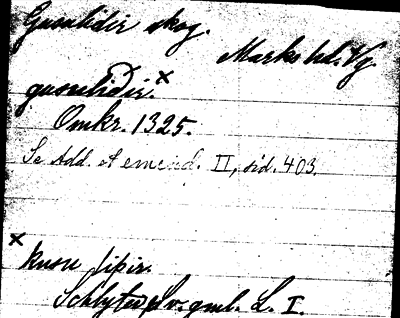 Gusulidir skog.
Marks hd. Vg
gusulidir.x
Omkr. 1325.
Se Add. et emend. II, sid. 403.
x
kusu lipir.
Schlyter Sv. gml. L. I.